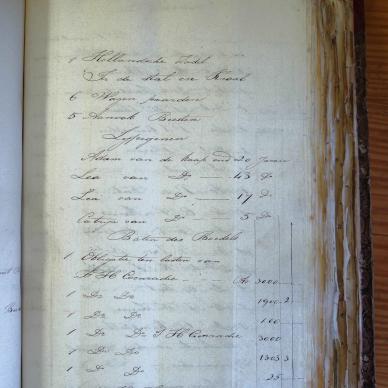 1 Hollandsche Zadel
In de Stal en Kraal
6 Wagen paarden
5 Aanteel Beesten
Lijfeigenen
Adam van de Kaap oud 20 Jaren
Lea van Do — 43 Do
Lea van Do — 17 Do
Catryn van Do — 5 Do
Baten des Boedels
1 Obligatie ten lasten van
F H Conradie - - - Rds 3000
1 Do Do 1900 2
1 Do Do 100
1 Do Do F H Conradie 3000
1 Do Do 1303 3
1 Do Do 25